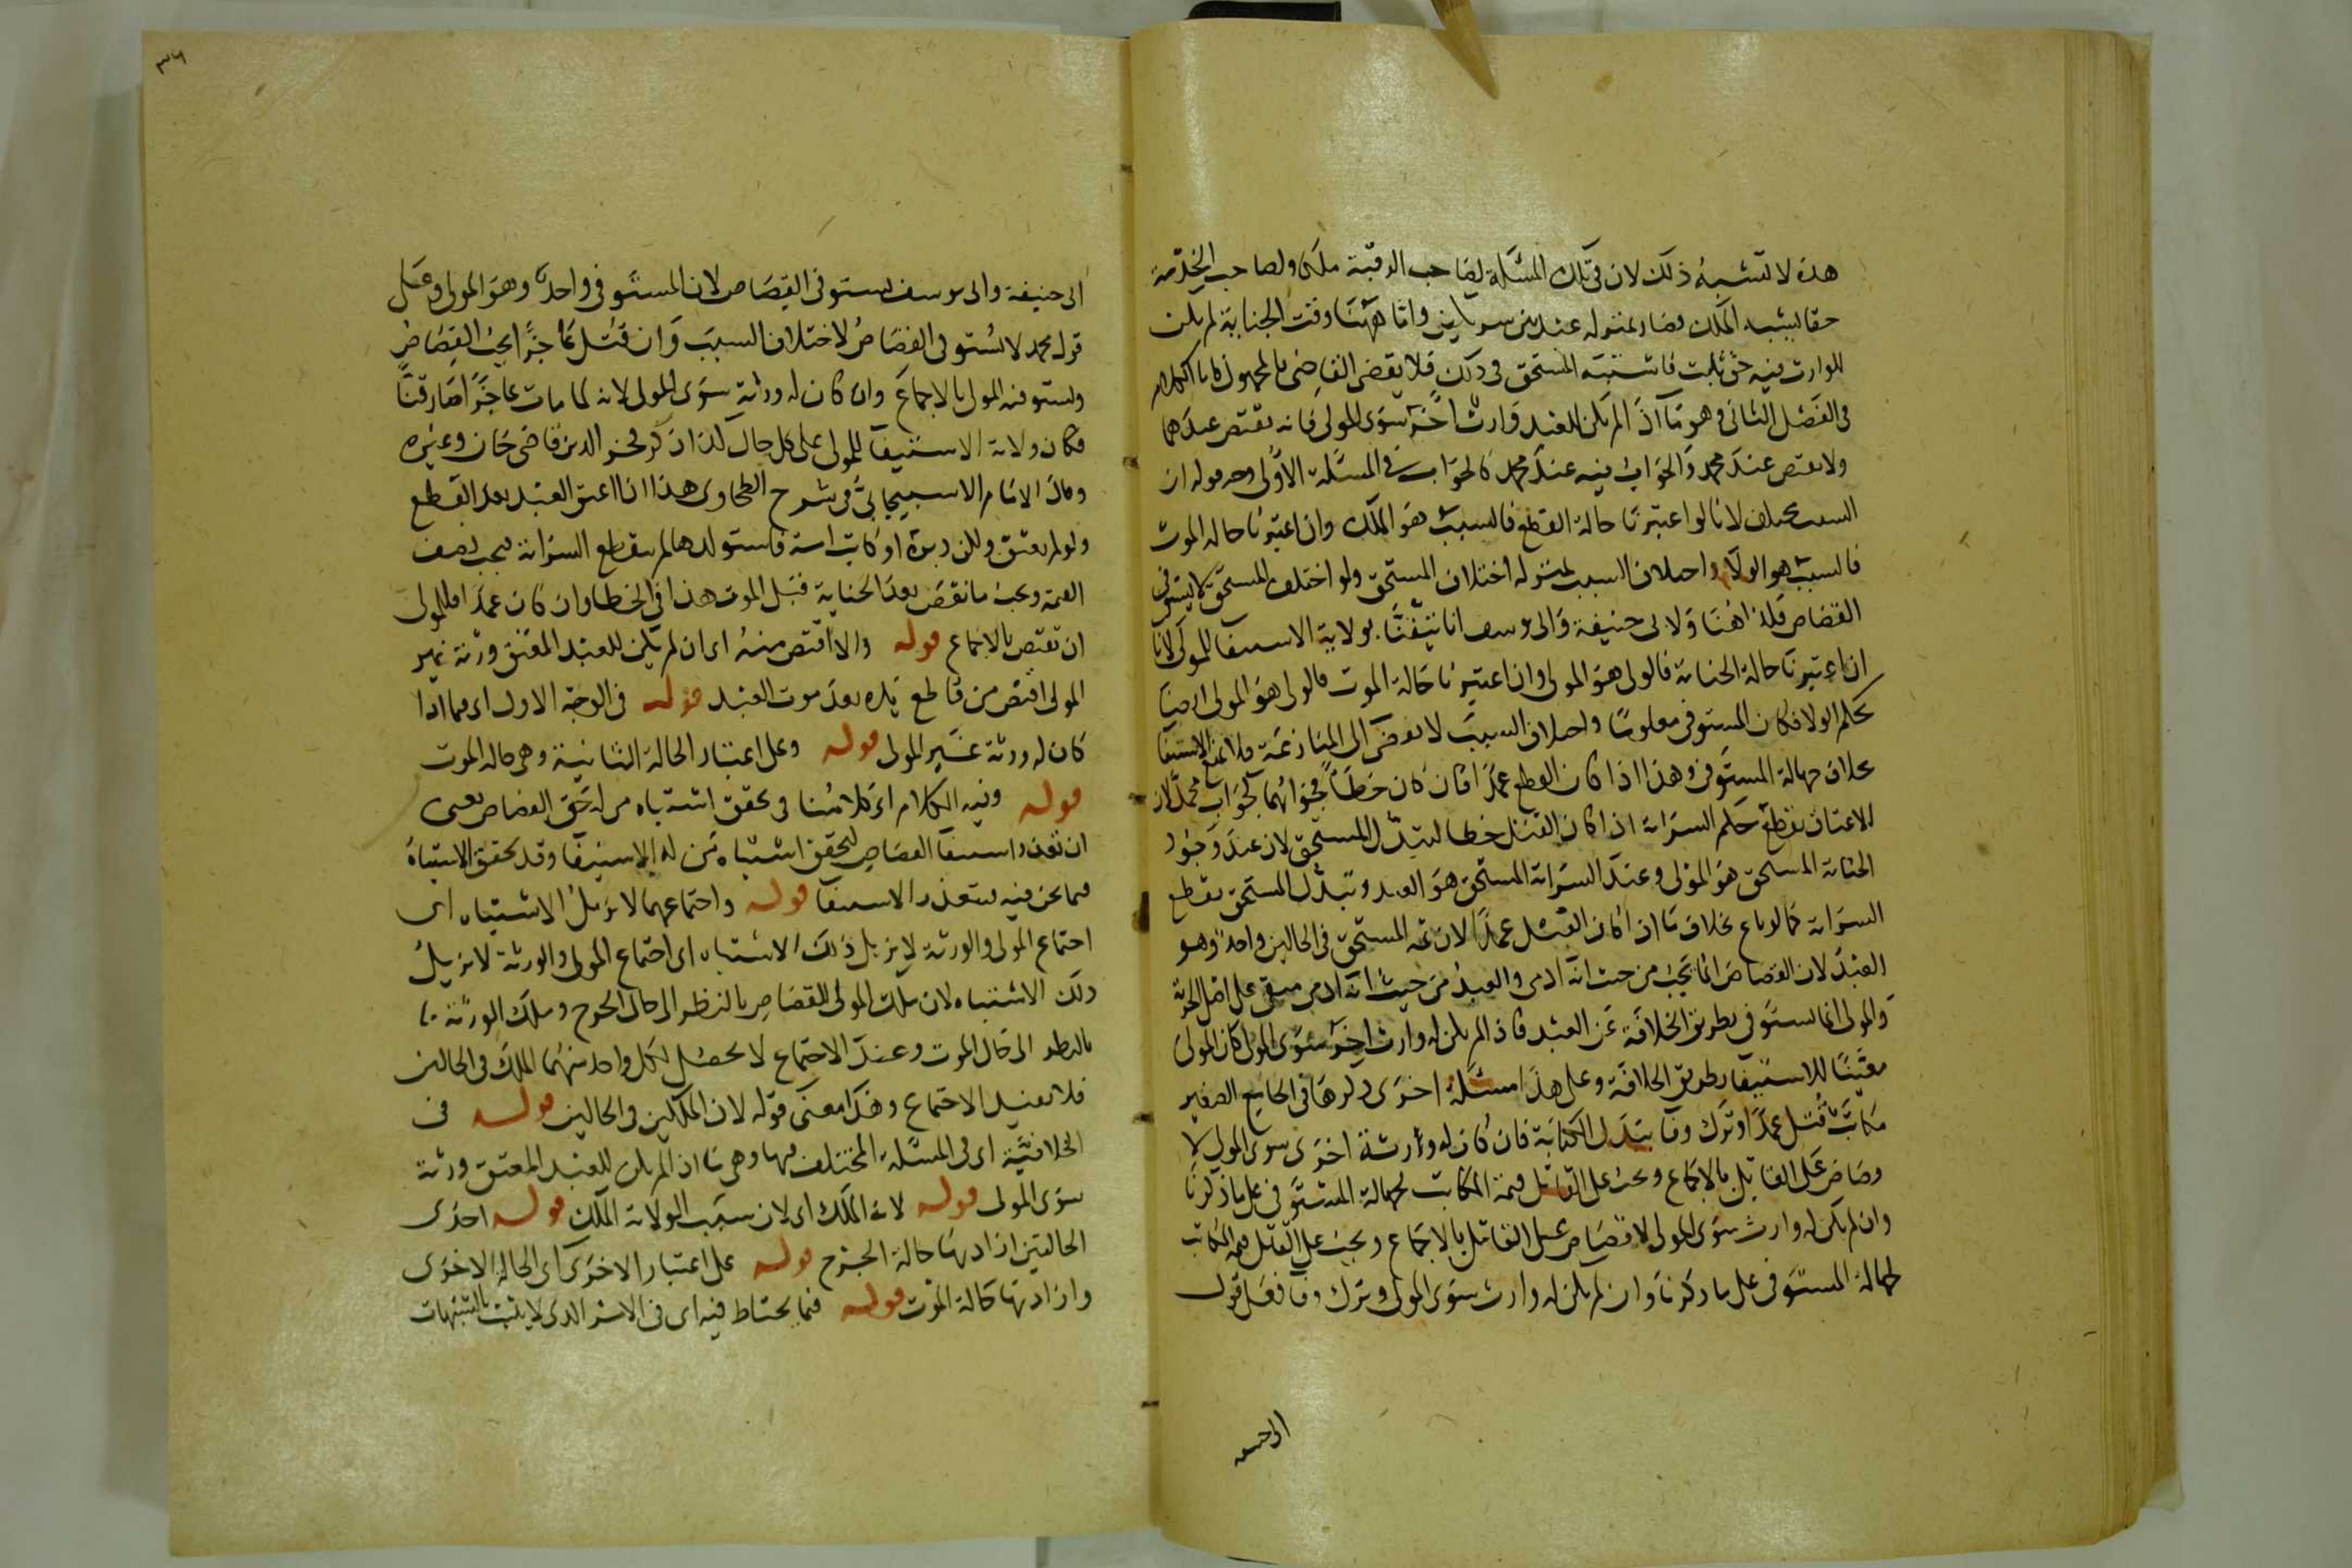 هذه لا تشبه ذلك لان في تلك المسئلة لصاحب الرقبة ملك ولصاحب الخدمة
حقا يشبه الملك فصار بمنزلة عبد بين شريكين واما ههنا وقت الجناية لم يكن
للوارث فيه حق ثابت فاشتبه المستحق في ذلك فلا يقضى القاضى بالمجهول
فى الفصل الثانى وهو ما اذا لم يكن للعبد وارث اخر سوى المولى فانه يقتص عندهما
ولا يقتص عند محمد والجواب فيه عند محمد كالجواب في المسئلة الاولى وجه قوله ان
السبب مختلف لانا لو اعتبرنا حالة القطع فالسبب هو الملك وان اعتبرنا حالة الموت
فالسبب هو الولاء واختلاف السبب بمنزلة اختلاف المستحق ولو اختلف المستحق لا يستوفى
القصاص فكذا هنا ولابى حنيفة وابى يوسف انا تيقنا بولاية الاستيفا للمولى لانا
ان اعتبرنا حالة الجناية فالولى هو المولى وان اعتبرنا حالة الموت فالولى هو المولى ايضا
بحكم الولا فكان المستوفى معلوما واختلاف السبب لا يفضى الى المنازعة فلا يمنع الاستيفا
بخلاف جهالة المستوفى وهذا اذا كان القطع عمدا فان كان خطأ فجوابهما كجواب محمد لان
الاعتاق يقطع حكم السراية اذا كان القتل خطا لتبدل المستحق لان عند وجود
الجناية المستحق هو المولى وعند السراية المستحق هو العبد وتبدل المستحق يقطع
السراية كما لو باع بخلاف ما اذا كان القتل عمدا لان ثمه المستحق فى الحالين واحد وهو
العبد لان القصاص انما يجب من حيث انه ادمى والعبد من حيث انه ادمى مبقى على اصل الحرية
والمولى انما يستوفى بطريق الخلافة عن العبد فاذا لم يكن له وارث اخر سوى المولى كان المولى
معينا للاستيفا بطريق الخلافة وعلى هذا مسئلة اخرى ذكرها فى الجامع الصغير
مكاتب قتل عمدا وترك وفا ببدل الكتابة فان كان له ورثة اخرى سوى المولى لا
قصاص على القاتل بالاجماع ويجب على القاتل قيمة المكاتب لجهالة المستوفى على ما ذكرنا
وان لم يكن له وارث سوى المولى لا قصاص على القاتل بالاجماع ويجب على القاتل قيمة المكاتب
لجهالة المستوفى على ما ذكرنا وان لم يكن له وارث سوى المولى وترك وفا فعلى قول
ابى حنيفة
٣٦
ابى حنيفة وابى يوسف يستوفى القصاص لان المستوفى واحد وهو المولى وعلى
قول محمد لا يستوفى القصاص لاختلاف السبب وان قتل عاجزا يجب القصاص
ويستوفيه المولى بالاجماع وان كان له ورثة سوى المولى لانه لما مات عاجزا صار قنا
فكان ولاية الاستيفا للمولى على كل حال كذا ذكر فخر الدين قاضى خان وغيره
وقال الامام الاسبيجابي في شرح الطحاوى هذا اذا اعتق العبد بعد القطع
ولو لم يعتق ولكن دبره او كانت امة فاستولدها لم ينقطع السراية فيجب نصف
القيمة ويجب ما نقص بعد الجناية قبل الموت هذا فى الخطا وان كان عمدا فللمولى
ان يقتص بالاجماع قوله والا اقتص منه اى ان لم يكن للعبد المعتق ورثة غير
المولى اقتص من قاطع يده بعد موت العبد قوله فى الوجه الاول اى فيما اذا
كان له ورثة غير المولى قوله وعلى اعتبار الحالة الثانية وهى حالة الموت
قوله وفيه الكلام اى كلامنا في تحقق اشتباه من له حق القصاص يعنى
ان تعذر استيفا القصاص لتحقق اشتباه من له الاستيفا وقد تحقق الاشتباه
فيما نحن فيه فيتعذر الاستيفا قوله واجتماعهما لا يزيل الاشتباه اى
اجتماع المولى والورثة لا يزيل ذلك الاشتباه اى اجتماع المولى والورثة لا يزيل
ذلك الاشتباه لان ملك المولى للقصاص بالنظر الى حال الجرح وملك الورثة
بالنظر الى حال الموت وعند الاجتماع لا يحصل لكل واحد منهما الملك فى الحالين
فلا يفيد الاجتماع وهذا معنى قوله لان الملكين فى الحالين قوله فى
الخلافية اى فى المسئلة المختلف فيها وهى ما اذا لم يكن للعبد المعتق ورثة
سوى المولى قوله لانه الملك اى لان سبب الولاية الملك قوله احدى
الحالتين اراد بها حالة الجرح قوله على اعتبار الاخرى اى الحالة الاخرى
واراد بها حالة الموت قوله فيما يحتاط فيه اى فى الامر الذى لا يثبت بالشبهات